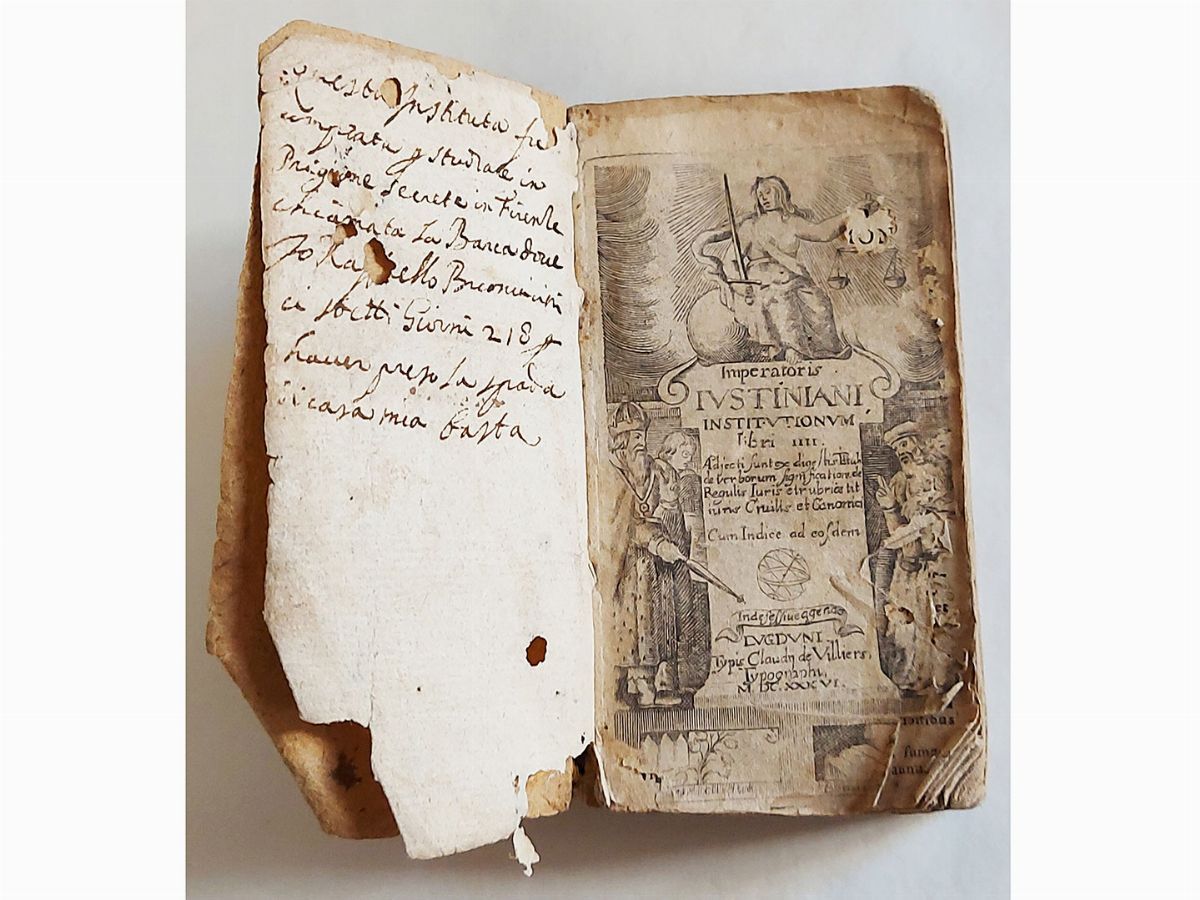 Questa Instituta fu
comprata p studiare in
Prigione secrete in Firenze
chiamata la Barca doue
Io Raffaello
ci stetti Giorni 218 p
hauer preso la spada
casa mia basta
Imperatoris
IVSTINIANI
INSTITVTIONUM
libri IIII.
Adjecti sunt ex digestis Tituli
de Verborum significatione de
Regulis Iuris et rubricæ tit
iuris Ciuilis et Canonici
Cum Indice ad eosdem
LVGDVNI
Typis Claudij de Villiers,
Typographi,
M. DC. XXXVI.